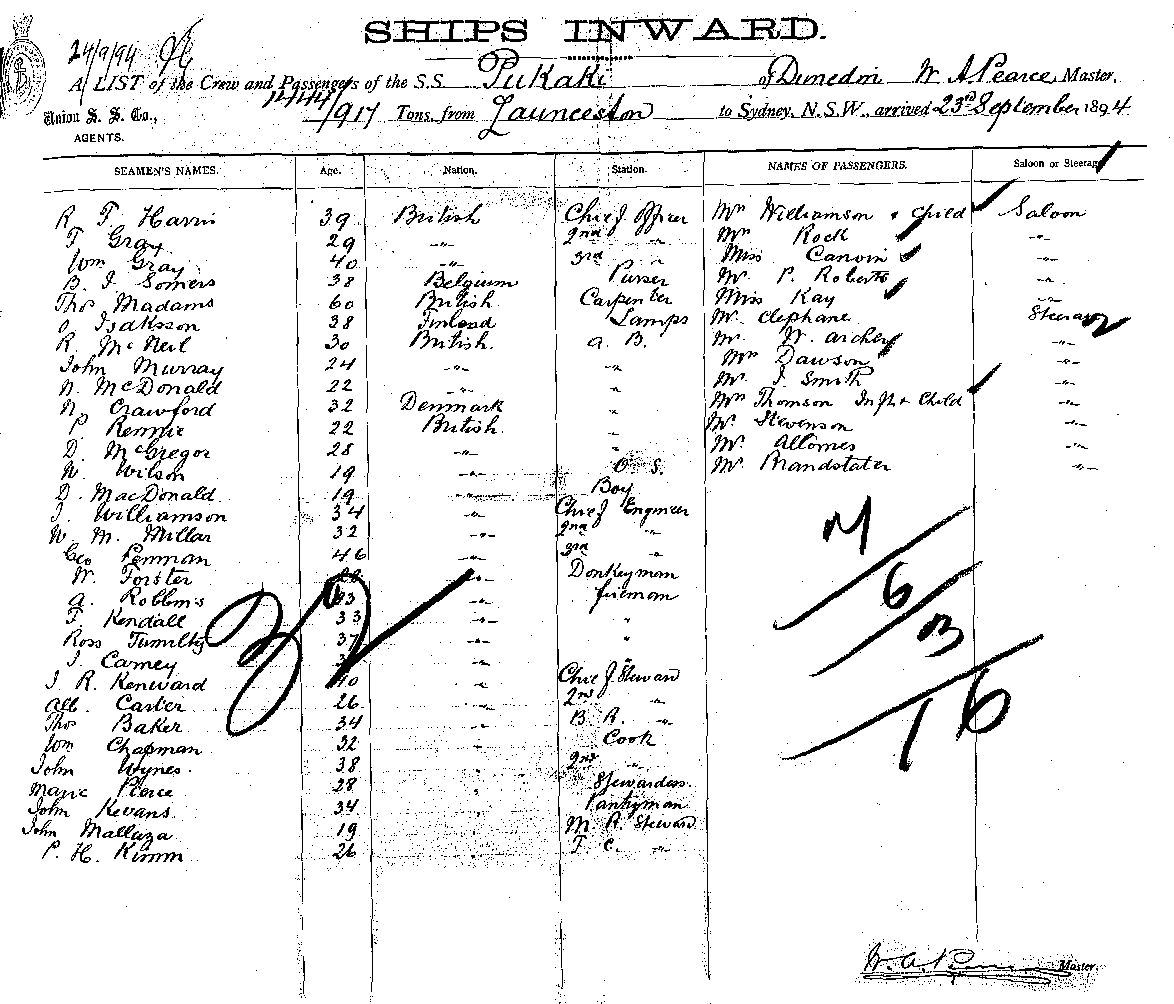 SHIPS INWARD.
24/9/94
A LIST of the Crew and Passengers of the S.S. Pukaki of Dunedin W. A Pearce, Master,
1444/917 Tons, from Launceston to Sydney, N.S.W., arrived 23rd September 1894
Union S. S. Co.,
AGENTS.
SEAMEN'S NAMES. Age. Nation. Station. NAMES OF PASSENGERS. Saloon or Steerage
R F Harris 39 British Chief Officer Mrs Williamson & child Saloon
F Gray 29 -"- 2nd " Mrs Rock -"-
Wm Gray 40 -"- 3rd " Miss Canvin "
B. J Somers 38 Belgium Purser Mr P. Roberts "
Thos Madams 60 British Carpenter Miss Kay -"-
O Isaksson 38 Finland Lamps Mr Clephane Steerage
R. McNeil 30 British. A. B. Mr W. Archer -"-
John Murray 24 -"- " Mrs Dawson "
N. McDonald 22 " " Mr J. Smith "
N. Crawford 32 Denmark " Mrs Thomson Inft & Child -"-
P. Rennie 22 British. " Mr Stevenson "
D. McGregor 28 -"- " Mr Allomes "
W. Wilson 19 -"- O. S. Mr Brandstater -"-
D. MacDonald 19 -"- Boy
J. Williamson 34 -"- Chief Engineer
W. M. Millar 32 -"- 2nd "
Geo Penman 46 3rd "
W. Forster -"- Donkeyman
A. Robbins 33 -"- fireman
F. Kendall 33 -"- "
Ross Tumilty 37 -"- "
J. Carney " "
J R. Kenward 40 " Chief Steward
Alb. Carter 26 " 2nd "
Thos Baker 34 " B. R. "
Wm Chapman 32 " Cook
John Wynes. 38 " 2nd "
Marie Pierce 28 " Stewardess
John Kevans 34 " Pantryman
John Mallaza 19 " M. R. Steward
P. H. Kimm 26 " F C. "
32
7
6
3
16
W. A. Pearce Master